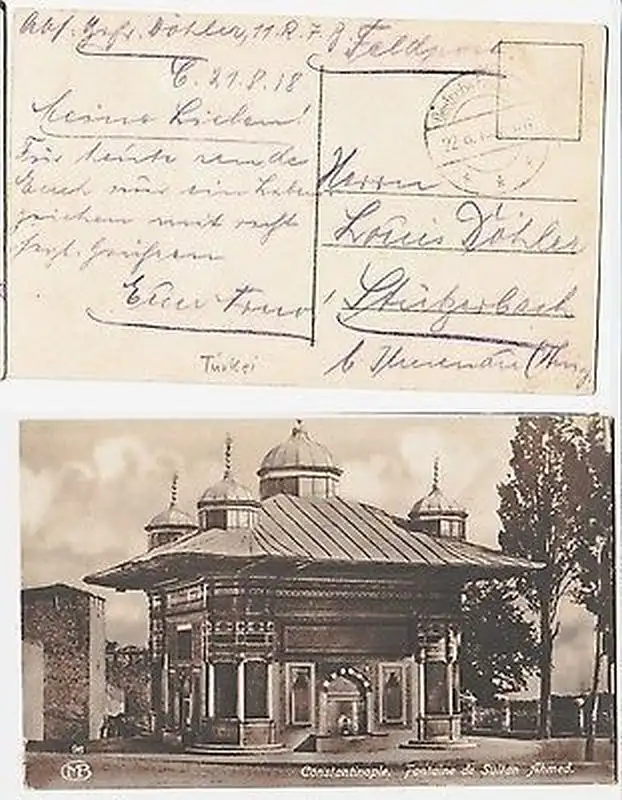 Abs. Gefr. Döhler, 11. R. 7. F
Feldpost
C. 21.8.18
Meine Lieben!
Für heute sende
Euch nur ein Lebens
zeichen mit recht
herzl. Grüssen
Euer
Herrn
Louis Döhler
Stützerbach
b Ilmenau (Thür
Türkei
MB
Constantinople. Fontaine de Sultan Ahmed.